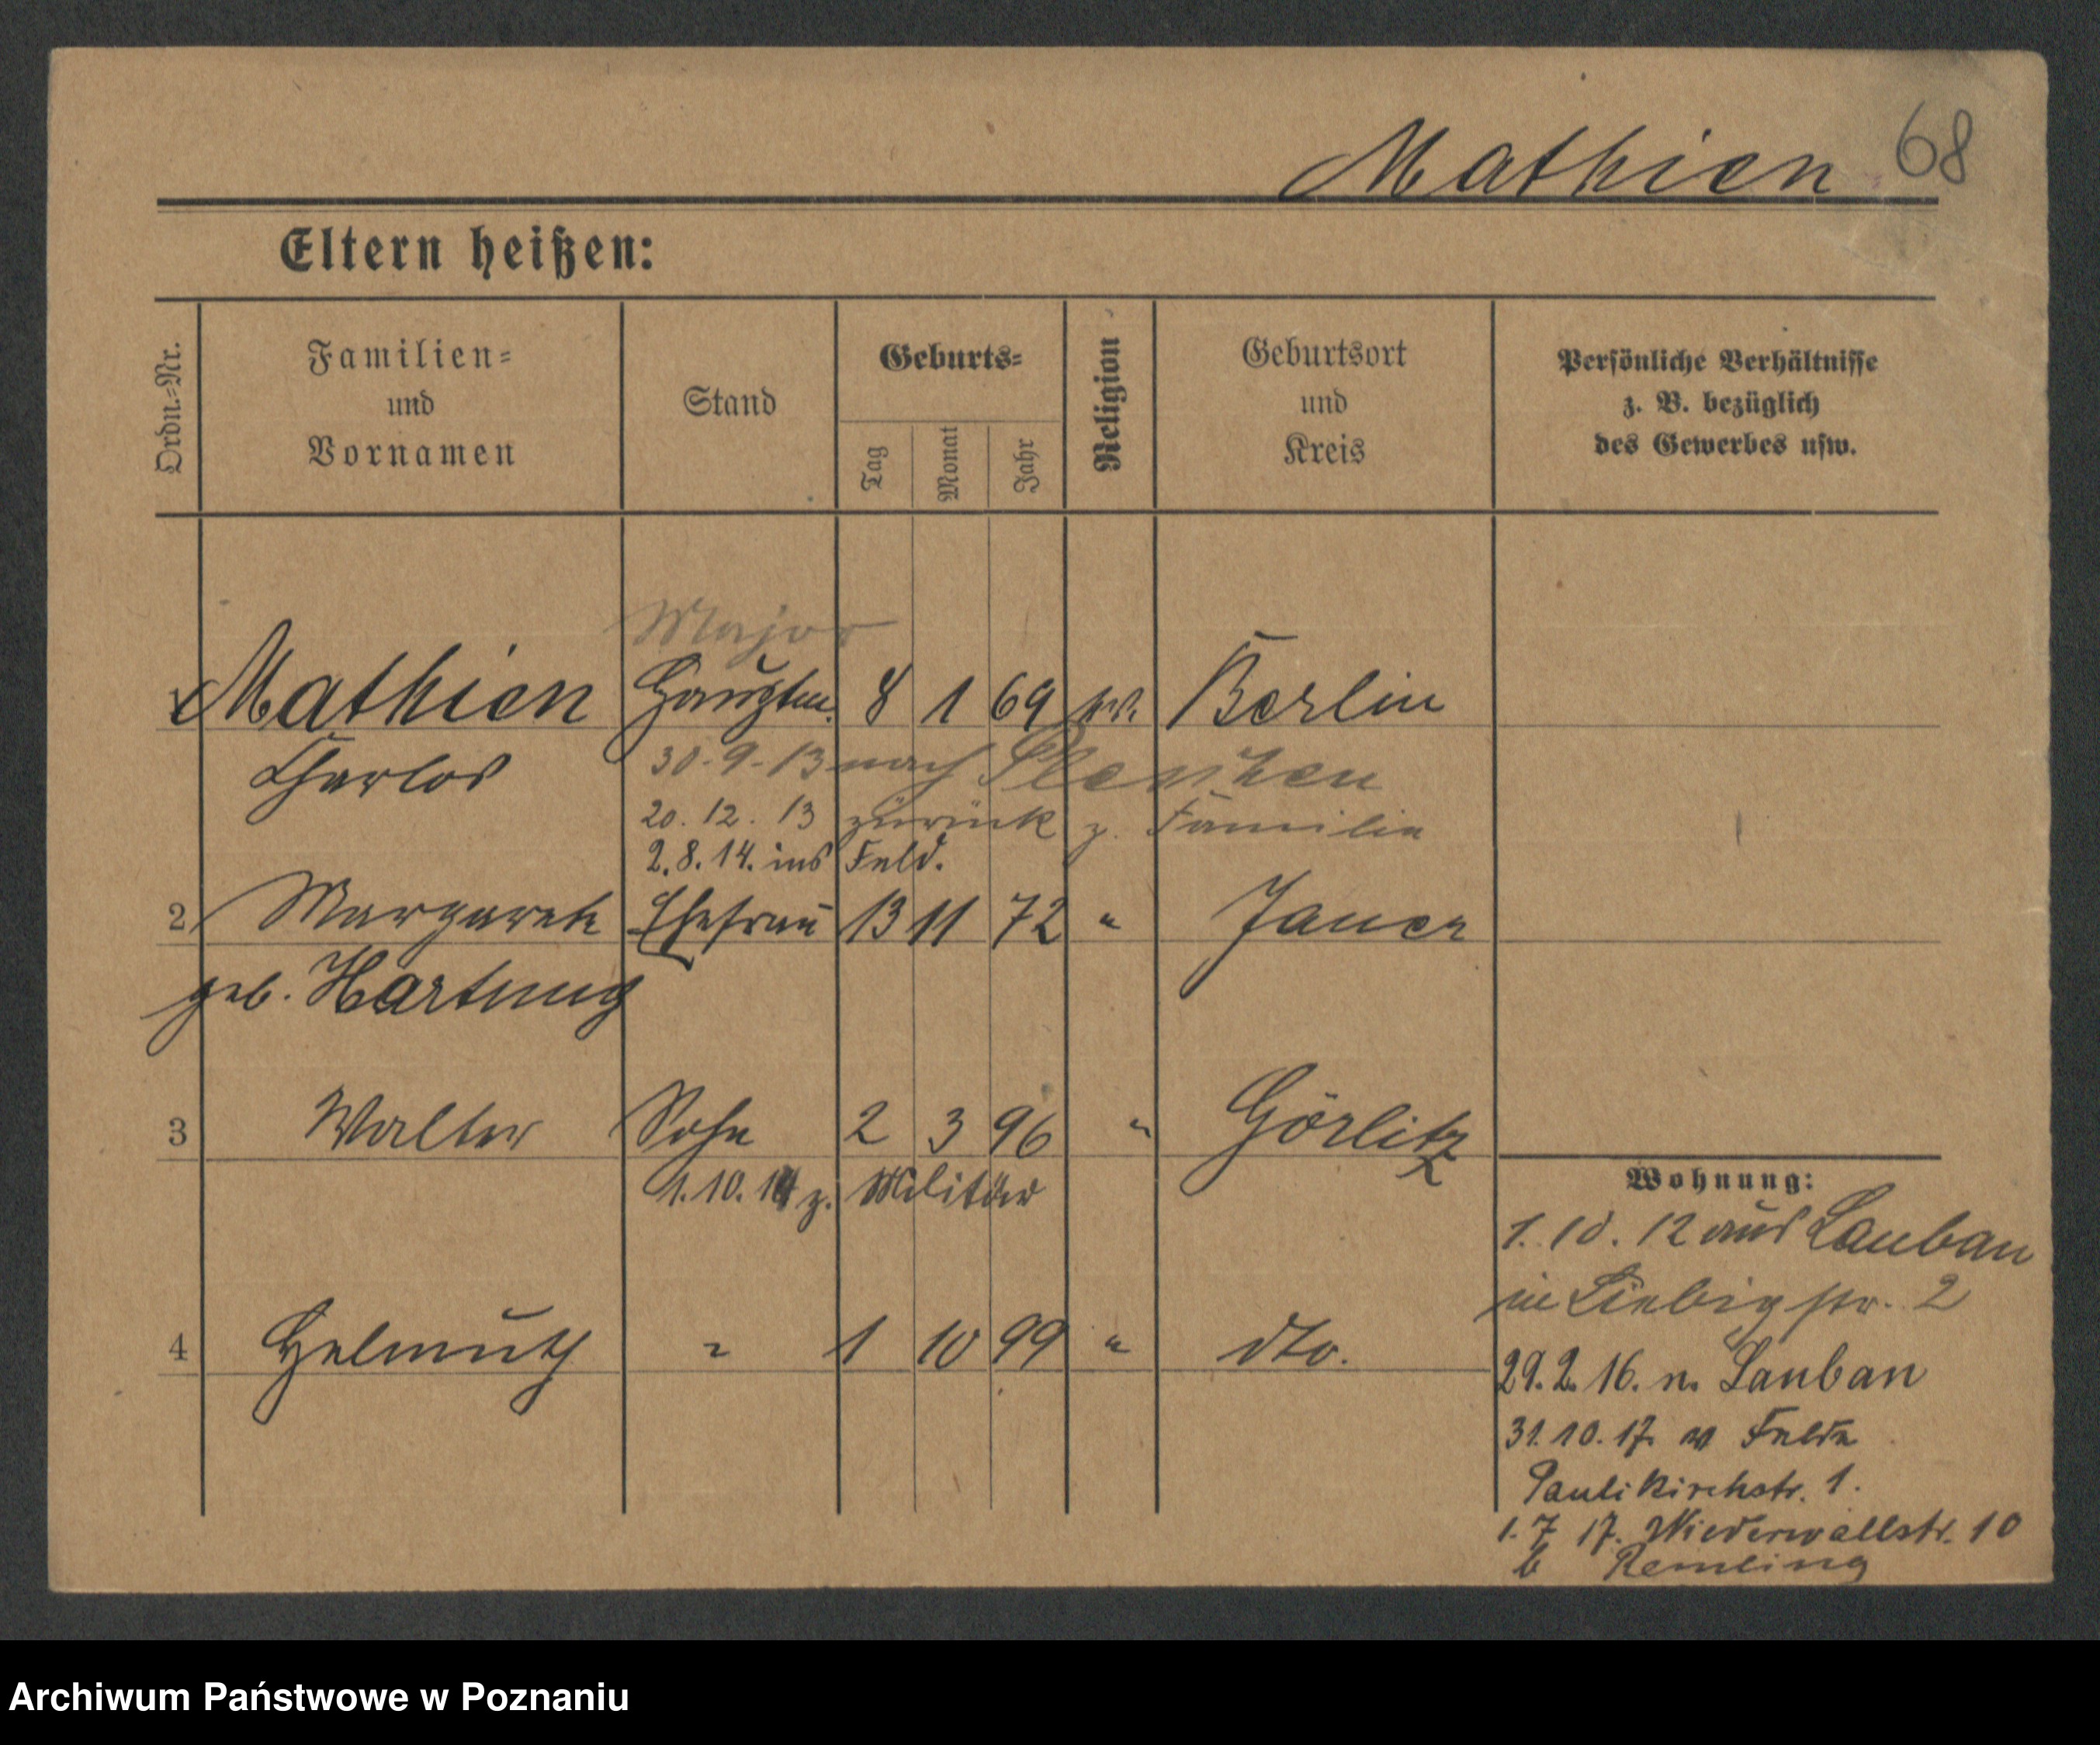 Mathien 68
Eltern heißen:
Ordn.=Nr.
Familien=
und
Vornamen
Stand
Geburts=
Tag
Monat
Jahr
Religion
Geburtsort
und
Kreis
Persönliche Verhältnisse
z. B. bezüglich
des Gewerbes usw.
Major
1 Mathien Hauptm. 8 1 69 ev. Berlin
Charlos 30.9.13 nach
20.12.13 zurück z. Familie
2.8.14. ins Feld.
2 Margareth Ehefrau 13 11 72 " Jauer
geb. Hartung
3 Walter Sohn 2 3 96 " Görlitz
1.10.14 z. Militär
4 Helmuth " 1 10 99 " dto.
Wohnung:
1.10.12 aus Lauban
in Liebigstr. 2
29.2.16. n. Lauban
31.10.17. v Felde
Paulikirchstr. 1.
1.7 17. Niederwallstr. 10
b Remling
Archiwum Państwowe w Poznaniu